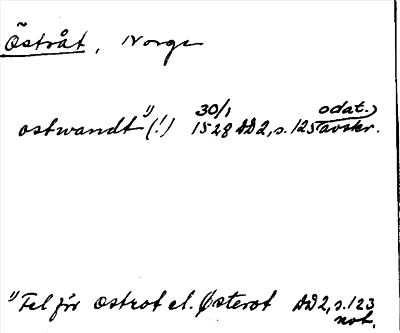 Östråt, Norge
30/1 odat.
ostwandt¹⁾ (!) 1528 DD2, s. 125 avskr.
¹⁾ Fel för Ostrot el. Østerot DD2, s. 123
not.